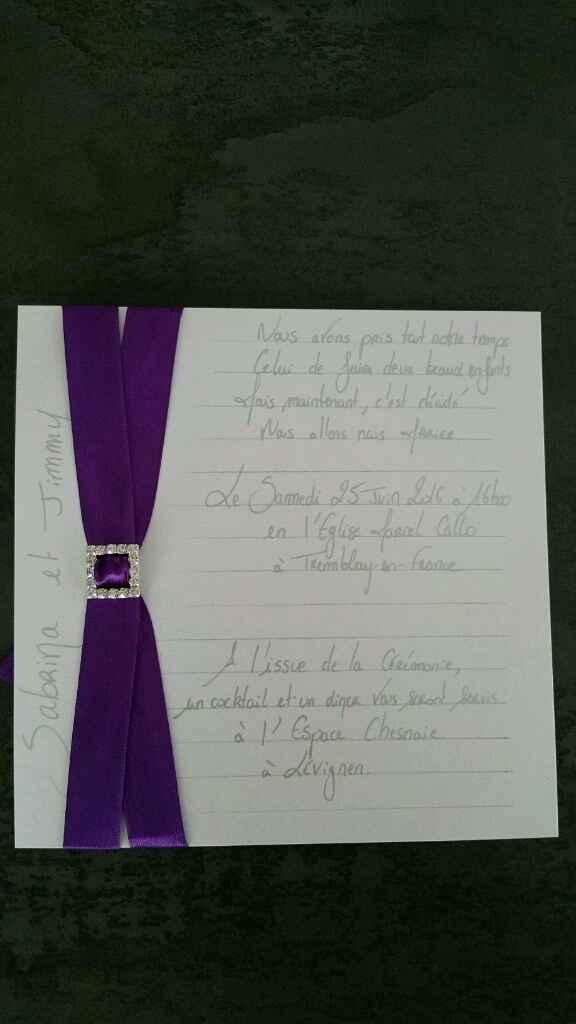 Sabrina et Jimmy
Nous avons pris tout notre temps
Celui de faire deux beaux enfants
Mais, maintenant, c'est décidé
Nous allons nous
Le Samedi 25 Juin 2016 à 16h00
en l'Eglise Marcel Callo
à Tremblay-en-France
A l'issue de la Cérémonie,
un cocktail et un diner vous seront servis
à l'Espace Chesnaie
à Lévignen.